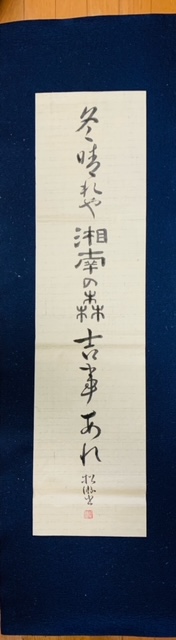 冬晴れや湘南の森吉事あれ